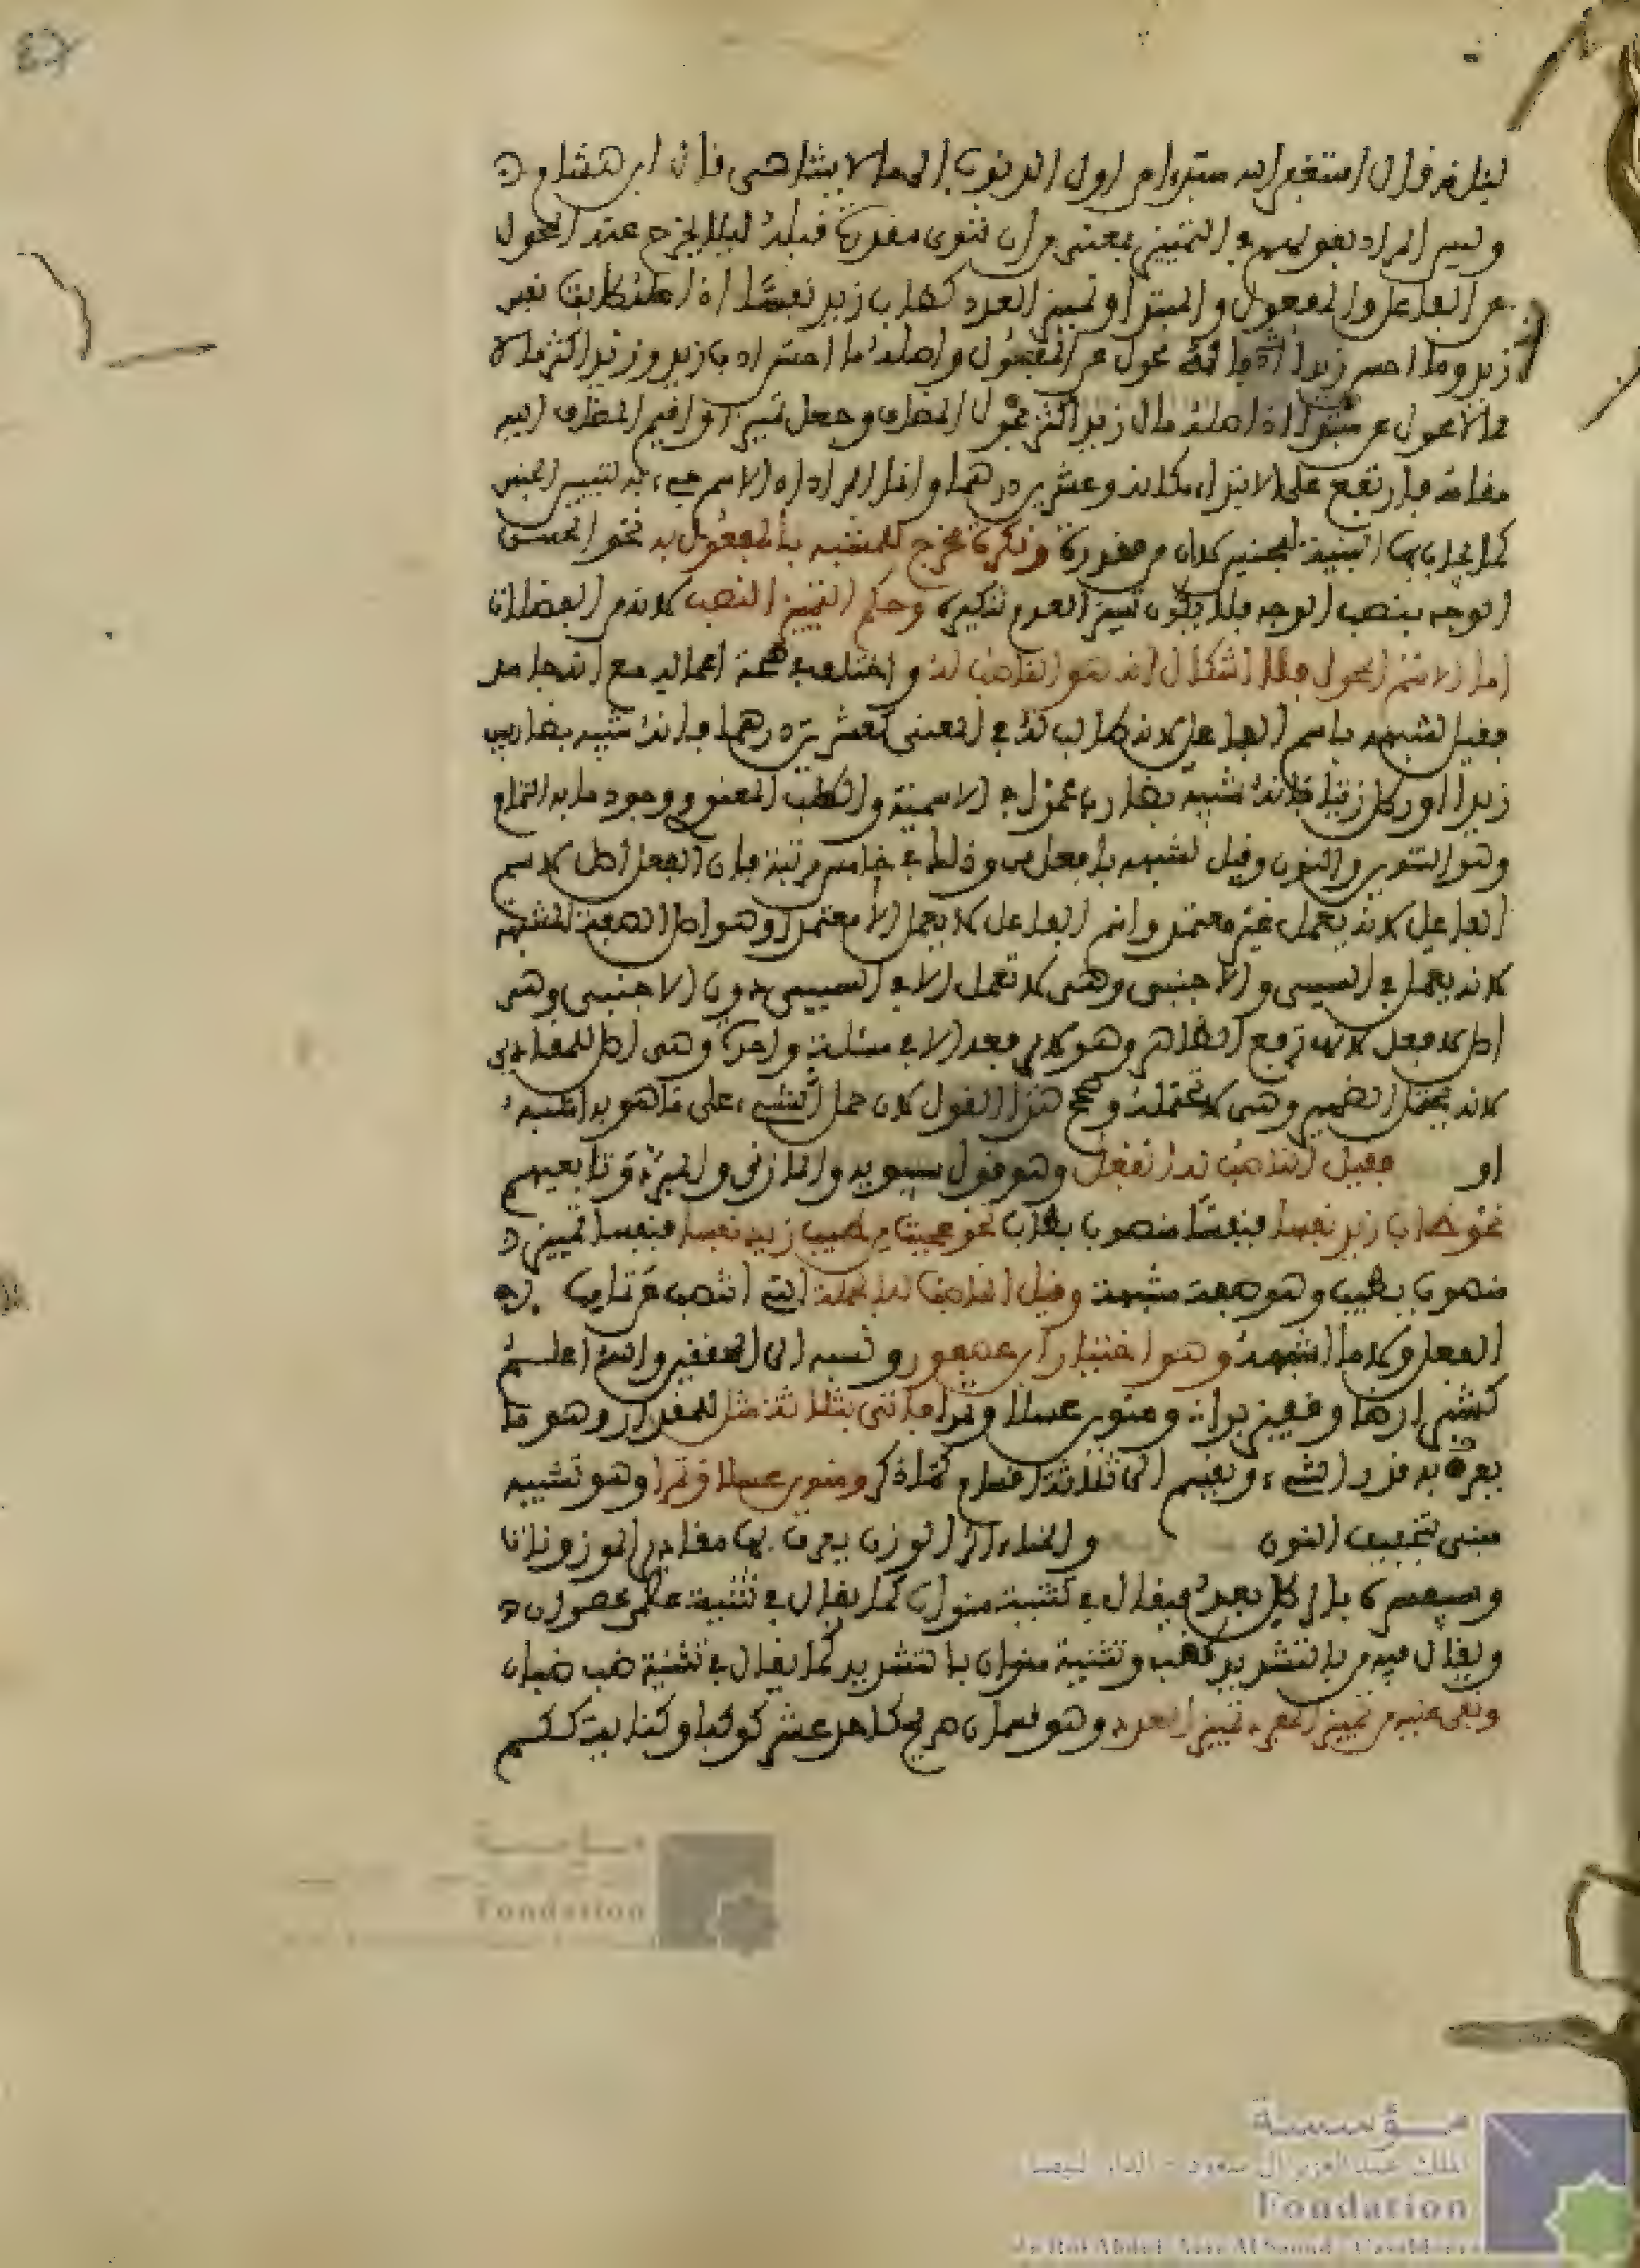 ليناسخ فإن استغفر الله مبتدأ من أول الذنوب إلى ما لا يتناهى قال ابن هشام
وليس المراد بقولهم في التمييز بمعنى من أن تنوى مقدرة قبله ليلا يخرج عنه المحول
عن الفاعل والمفعول والمبتدا وتمييز العدد كطاب زيد نفسا إذ أصله طابت نفس
زيد وما أحسن زيدا أدبا لأنه محول عن المفعول وأصله ما أحسن أدب زيد وزيد أكثر مالا
مالا محول عن مبتدا إذ أصله مال زيد أكثر محول المضاف وجعل تمييزا وأقيم المضاف إليه
مقامه فارتفع على الابتداء مكانه وعشرين درهما وإنما المراد أن الاسم جيء به لتبيين الجنس
كما يجاء بها المبينة لجنس كأن من مقدرة ونكرة مخرج للمشبه بالمفعول به نحو الحسن
الوجه بنصب الوجه فلا يكون تمييز العدم تنكيره وحكم التمييز النصب لأنه من الفضلات
أما الاسم المحول فلا إشكال أنه هو الناصب له واختلف في صحة إعماله مع أنه جامد
فقيل لشبهه باسم الفاعل لأنه طالب له في المعنى كعشرين درهما فإنه شبيه بضاربين
زيدا أو رطل زيتا فإنه شبيه بضارب عمرا في الاسمية والطلب المعنوي ووجود ما به التمام
وهو التنوين والنون وقيل لشبهه بأفعل من وذلك في خامس مرتبة فإن الفعل أصل لاسم
الفاعل لأنه يعمل غير معتمد واسم الفاعل لا يعمل إلا معتمدا وهو أصل الصفة المشبهة
لأنه يعمل في السببي والأجنبي وهي لا تعمل إلا في السببي دون الأجنبي وهي
أصل لأفعل لأنها ترفع الظاهر وهو لا يرفعه إلا في مسئلة واحدة وهي أصل للمقادير
لأنه يتحمل الضمير وهي لا تتحمله وصحح هذا القول لأن حمل الشيء على ما هو به أشبه
او فقيل الناصب له الفعل وهو قول سيبويه والمازني والمبرد وتابعيهم
نحو طاب زيد نفسا فنفسا منصوب بطاب نحو عجبت من طيب زيد نفسا فنفسا تمييز
منصوب بطيب وهو صفة مشبهة وقيل الناصب له الجملة التي انتصب عن تمامها
الفعل ولا ما أشبهه وهو اختيار ابن عصفور ونسبه إلى المحققين والله أعلم
كشبر أرضا وقفيز برا ومنوين عسلا وتمرا فأتى بثلاثة مثل للمقدار وهو ما
يعرف به قدر الشيء وينقسم إلى ثلاثة أقسام كما ذكر ومنوين عسلا وتمرا وهو تثنية
منى بتخفيف النون والمناء آلة الوزن يعرف بها مقادير الموزونات
ويقال فيه من بالتشديد كضب وتثنية منوان بالتشديد كما يقال في تثنية ضب ضبان
وبقي عليه من تمييز المفرد تمييز العدد وهو قسمان صريح كأحد عشر كوكبا وكناية ككم
مؤسسة
الملك عبد العزيز آل سعود - الدار البيضاء
Fondation
du Roi Abdul-Aziz Al Saoud - Casablanca